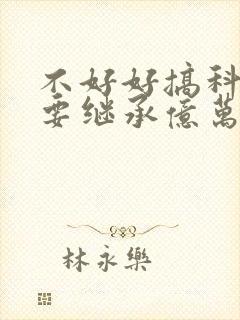 不好好搞科
要继承億萬
林永樂